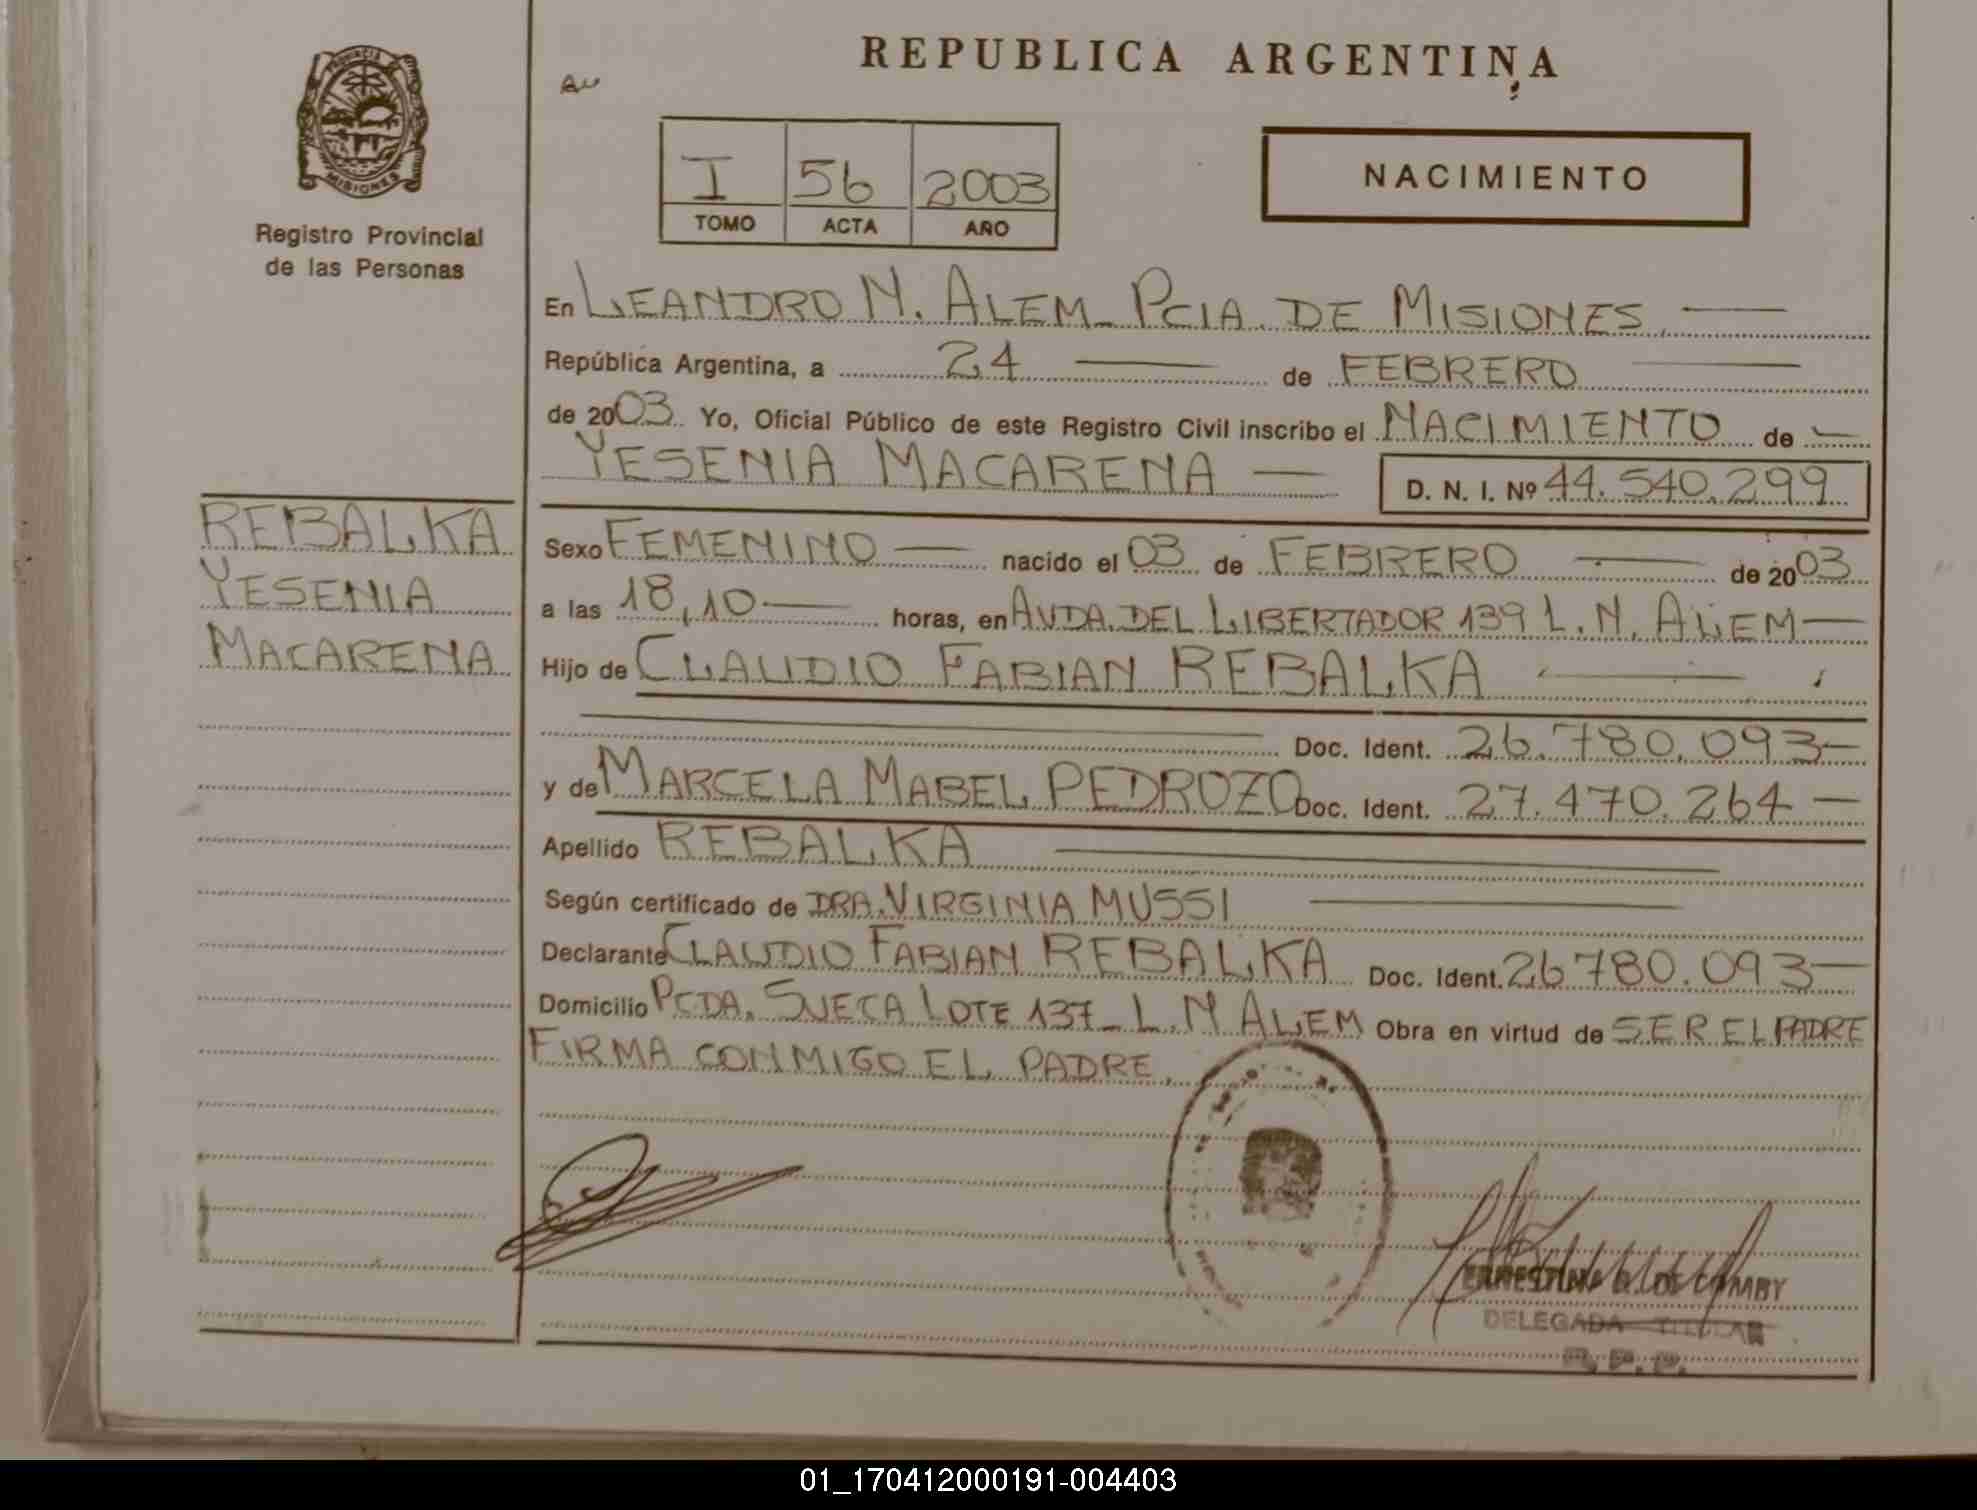 PROVINCIA DE
MISIONES
Registro Provincial
de las Personas
REPUBLICA ARGENTINA
I 56 2003
TOMO ACTA AÑO
NACIMIENTO
En LEANDRO N. ALEM_ PCIA. DE MISIONES
República Argentina, a 24 de FEBRERO
de 2003 Yo, Oficial Público de este Registro Civil inscribo el NACIMIENTO de
YESENIA MACARENA D. N. I. Nº 44.540.299
REBALKA
YESENIA
MACARENA
Sexo FEMENINO nacido el 03 de FEBRERO de 2003
a las 18,10 horas, en AVDA. DEL LIBERTADOR 139 L. N. ALEM
Hijo de CLAUDIO FABIAN REBALKA
Doc. Ident. 26.780.093
y de MARCELA MABEL PEDROZO Doc. Ident. 27.470.264
Apellido REBALKA
Según certificado de DRA. VIRGINIA MUSSI
Declarante CLAUDIO FABIAN REBALKA Doc. Ident. 26780.093
Domicilio PCDA. SUECA LOTE 137_ L. N ALEM Obra en virtud de SER EL PADRE
FIRMA CONMIGO EL PADRE.
ERNESTINA DE COMBY
DELEGADA TITULAR
R. P. P.
01_170412000191-004403